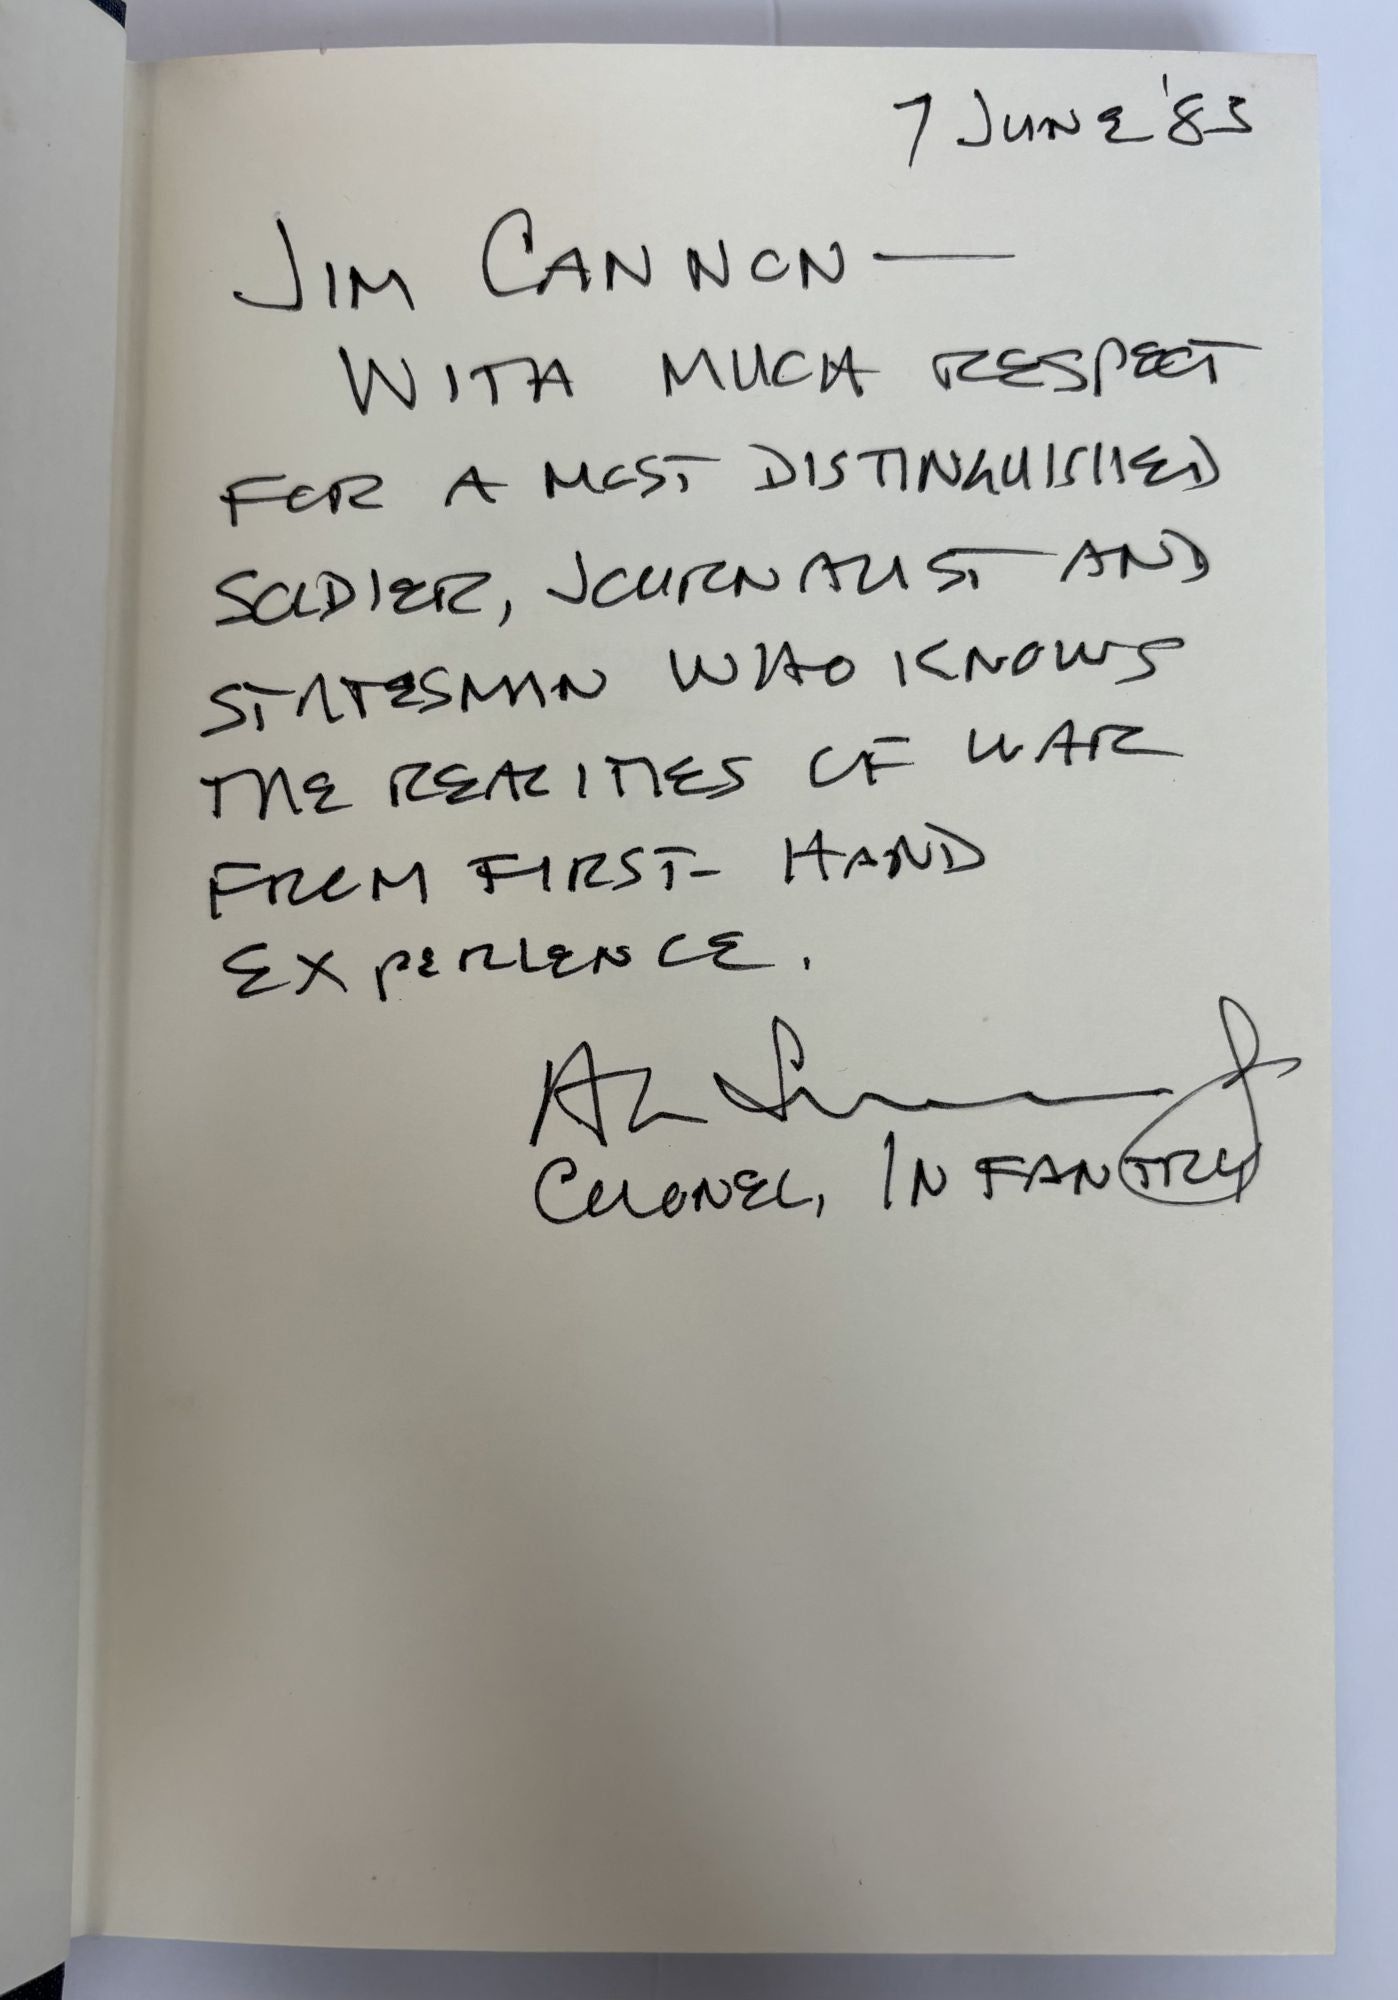 7 JUNE '83
JIM CANNON —
WITH MUCH RESPECT
FOR A MOST DISTINGUISHED
SOLDIER, JOURNALIST AND
STATESMAN WHO KNOWS
THE REALITIES OF WAR
FROM FIRST- HAND
EXPERIENCE.
COLONEL, INFANTRY